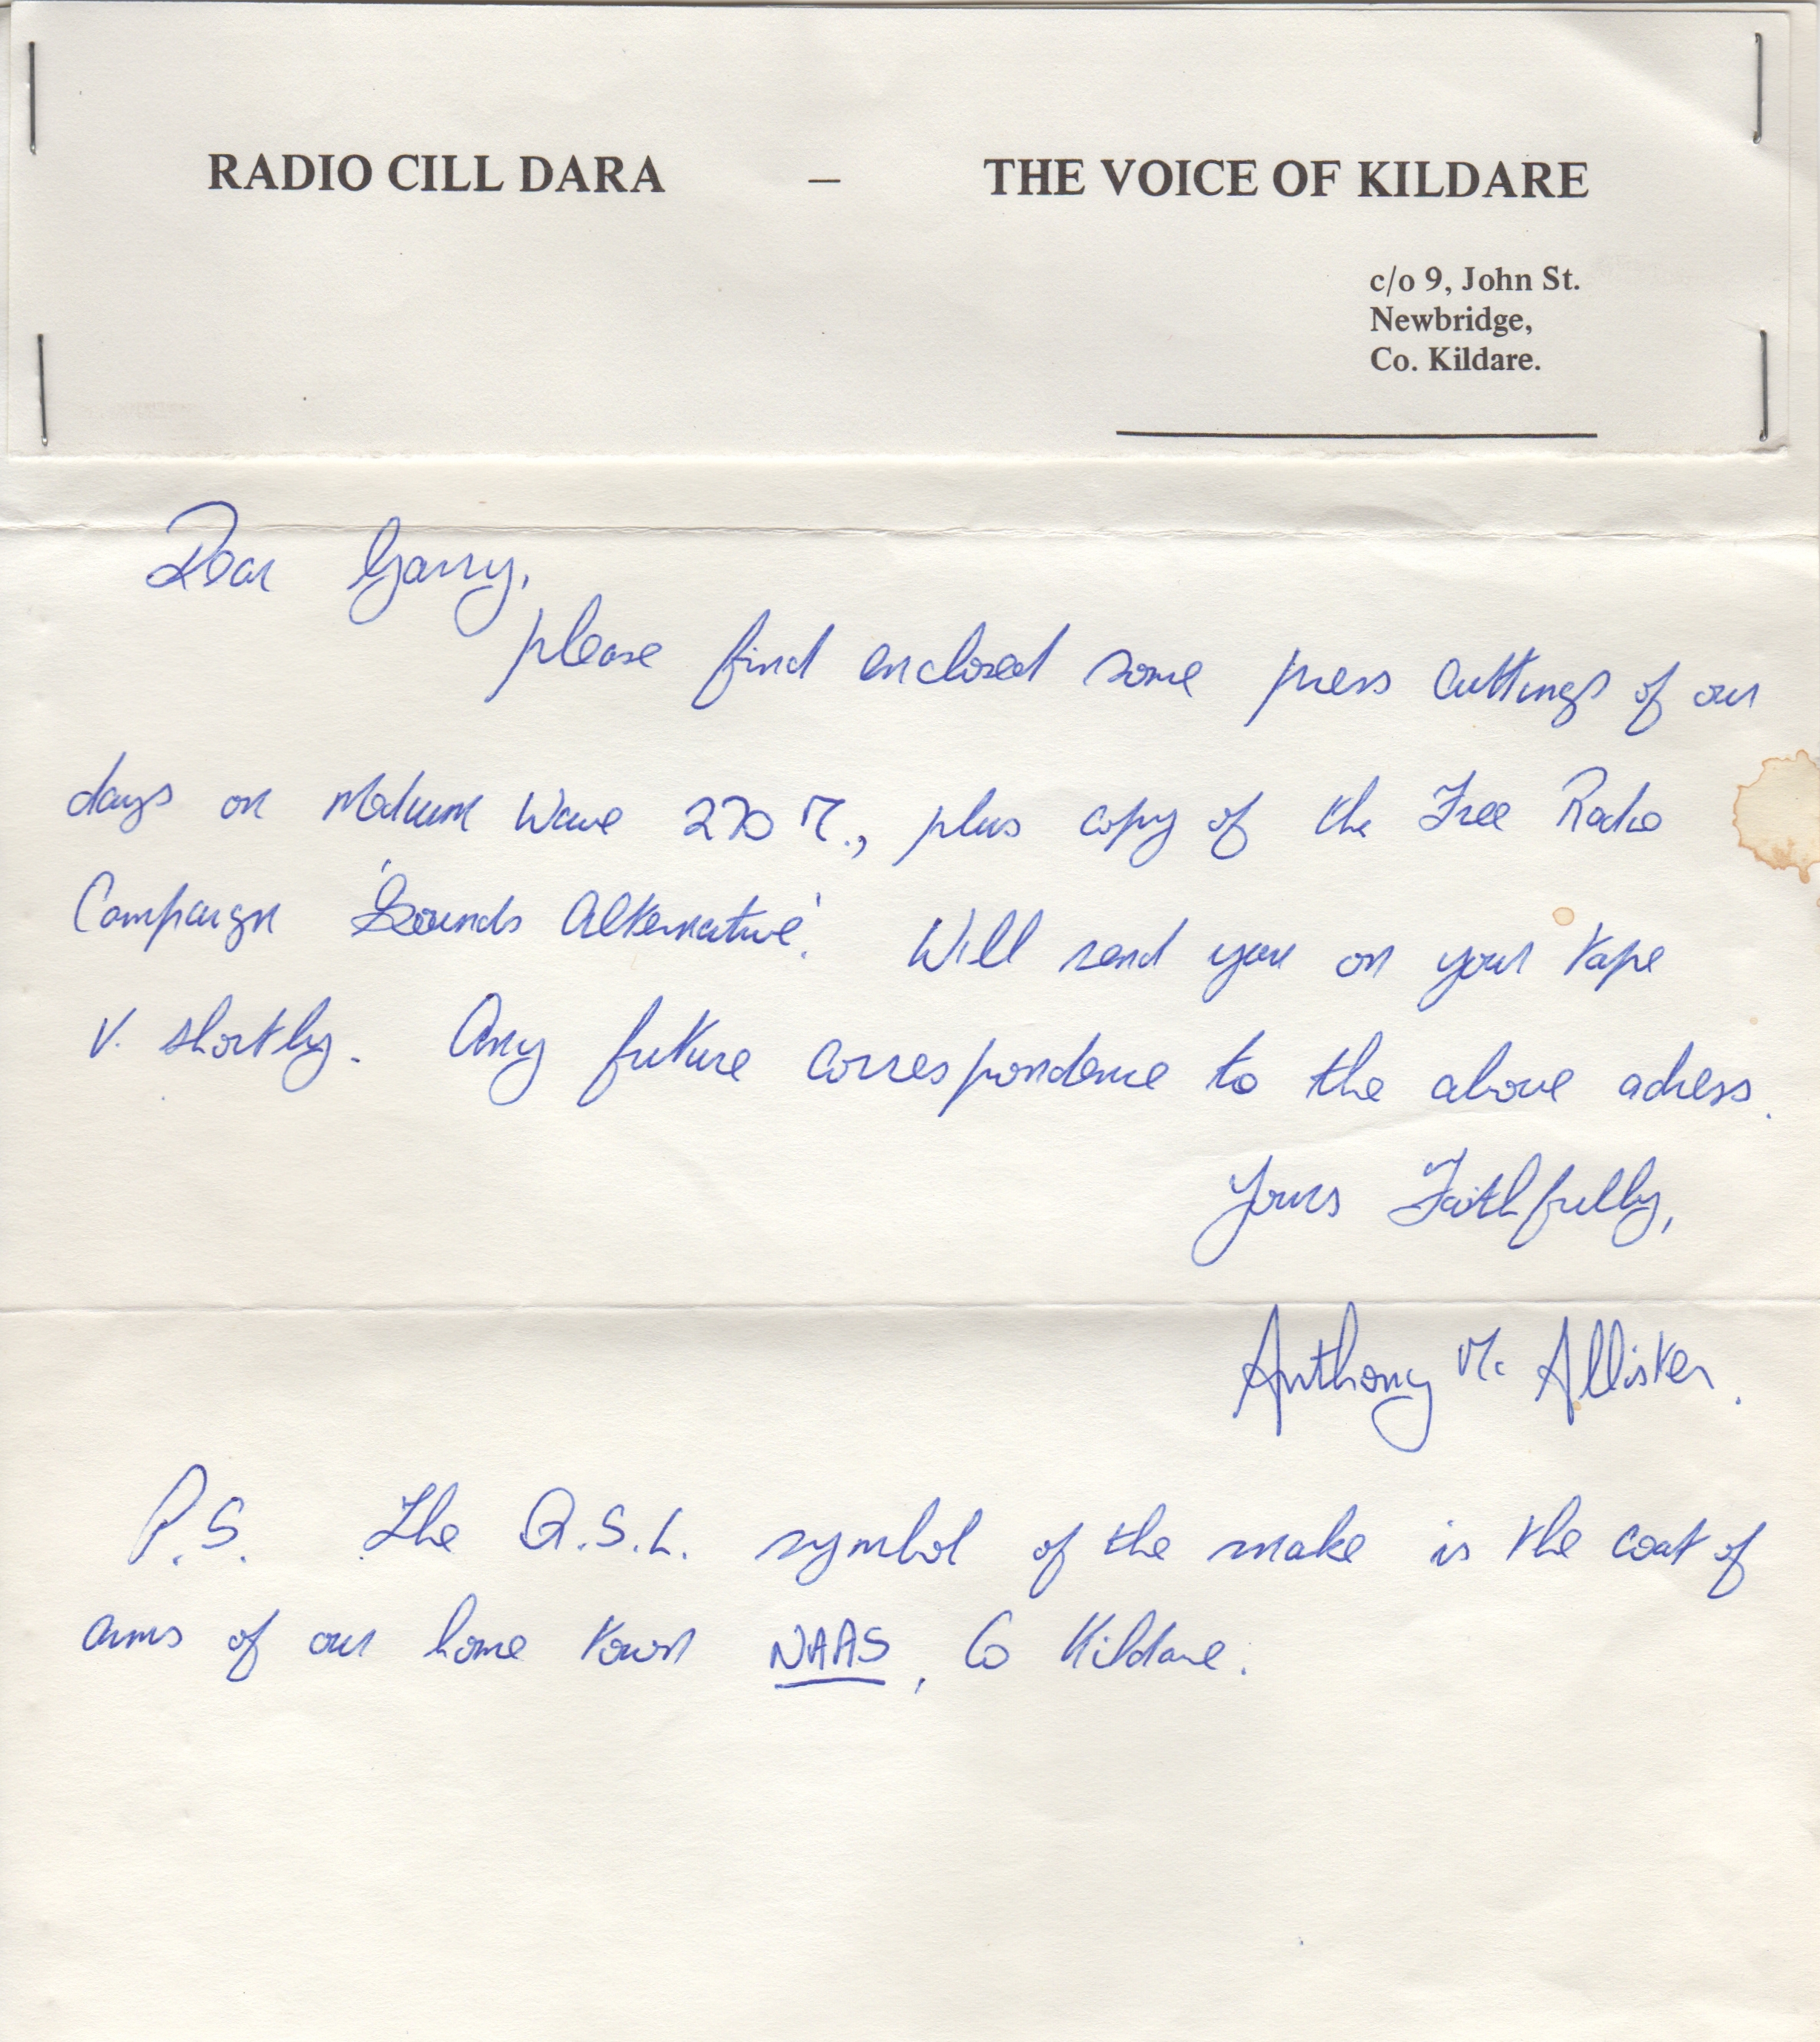 RADIO CILL DARA – THE VOICE OF KILDARE
c/o 9, John St.
Newbridge,
Co. Kildare.
Dear Garry,
please find enclosed some press cuttings of our
days on Medium Wave 270 M., plus copy of the Free Radio
Campaign 'Sounds Alternative'. Will send you on your tape
V. shortly. Any future correspondence to the above adress.
Yours Faithfully,
Anthony Mc Allister.
P.S. The Q.S.L. symbol of the snake is the coat of
arms of our home town NAAS, Co Kildare.